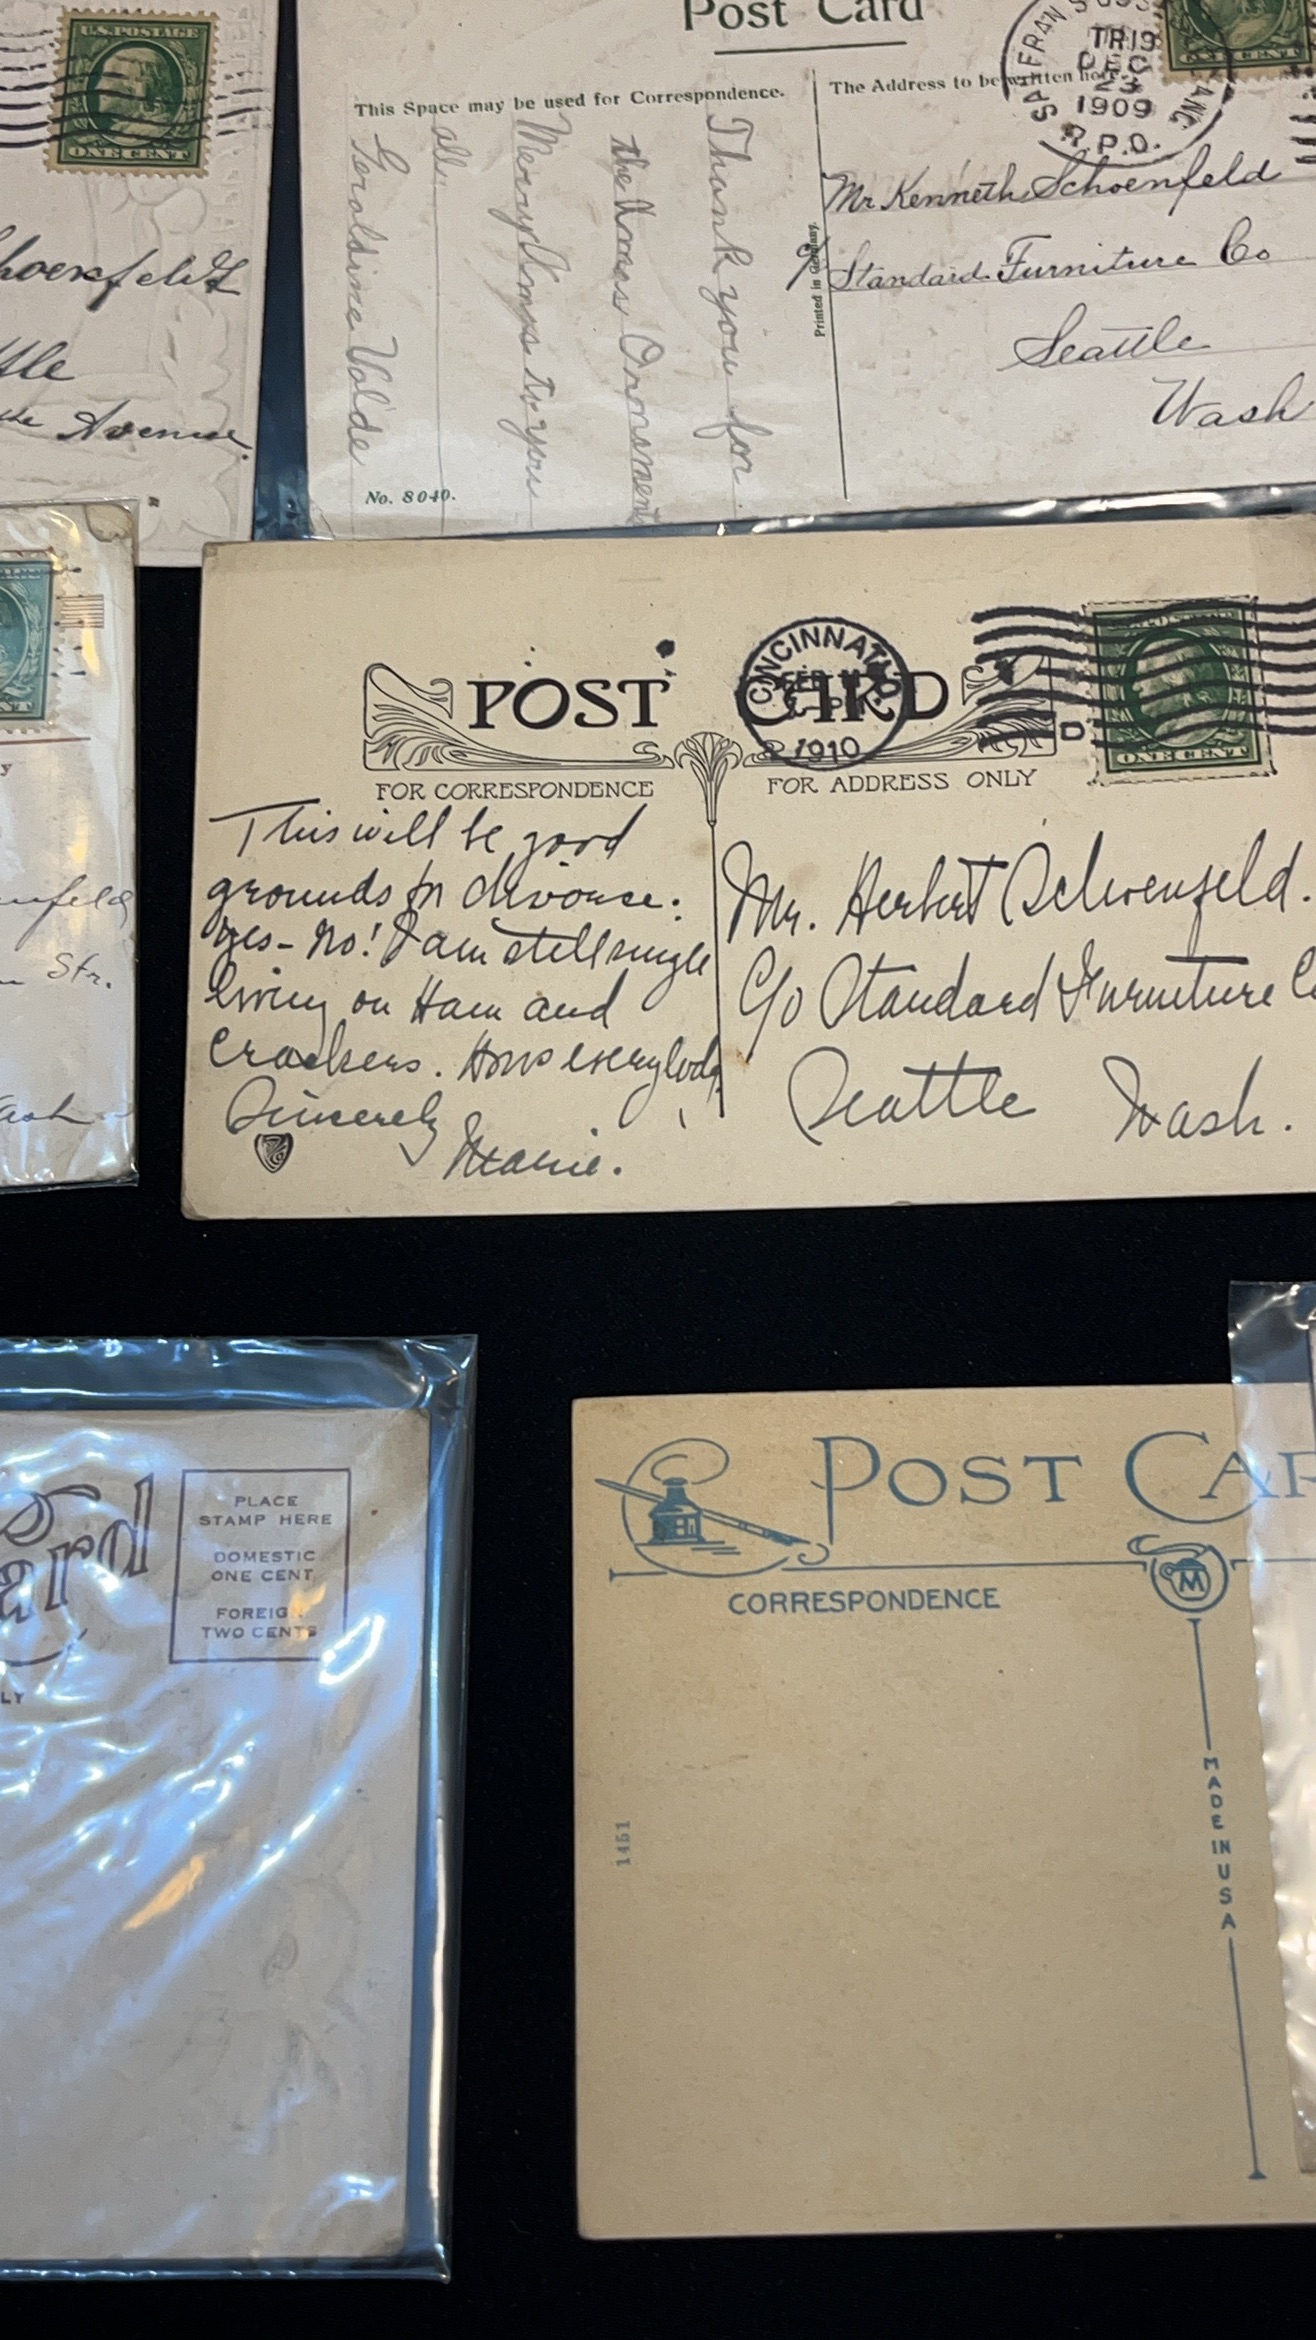 U.S. POSTAGE
ONE CENT
Avenue.
Post Card
This Space may be used for Correspondence.
The Address to be written here.
TR 19
DEC
23
1909
R.P.O.
ONE CENT
Thank you for
the Xmas Ornament
Merry Xmas to you
all.
Geraldine Valde
No. 8040.
Printed in Germany.
Mr Kenneth Schoenfeld
Standard Furniture Co
Seattle
Wash
Str.
POST CARD
CINCINNATI
1910
D
ONE CENT
FOR CORRESPONDENCE
FOR ADDRESS ONLY
This will be good
grounds for divorse.
Yes - No! I am still single
living on Ham and
Crackers. Hows everybody
Sincerely
Marie.
Mr. Herbert Schoenfeld.
C/o Standard Furniture Co
Seattle Wash.
ard
LY
PLACE
STAMP HERE
DOMESTIC
ONE CENT
FOREIGN
TWO CENTS
POST CAR
M
CORRESPONDENCE
MADE IN USA
1451